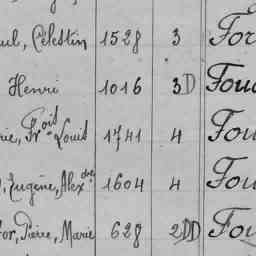 ul, Célestin 1528 3 For
Henri 1016 3D Fou
rie, Fr.ois Louis 1741 4 Fou
, Eugène, Alex.dre 1604 4 Fou
or, Pierre, Marie 628 2DD Fou